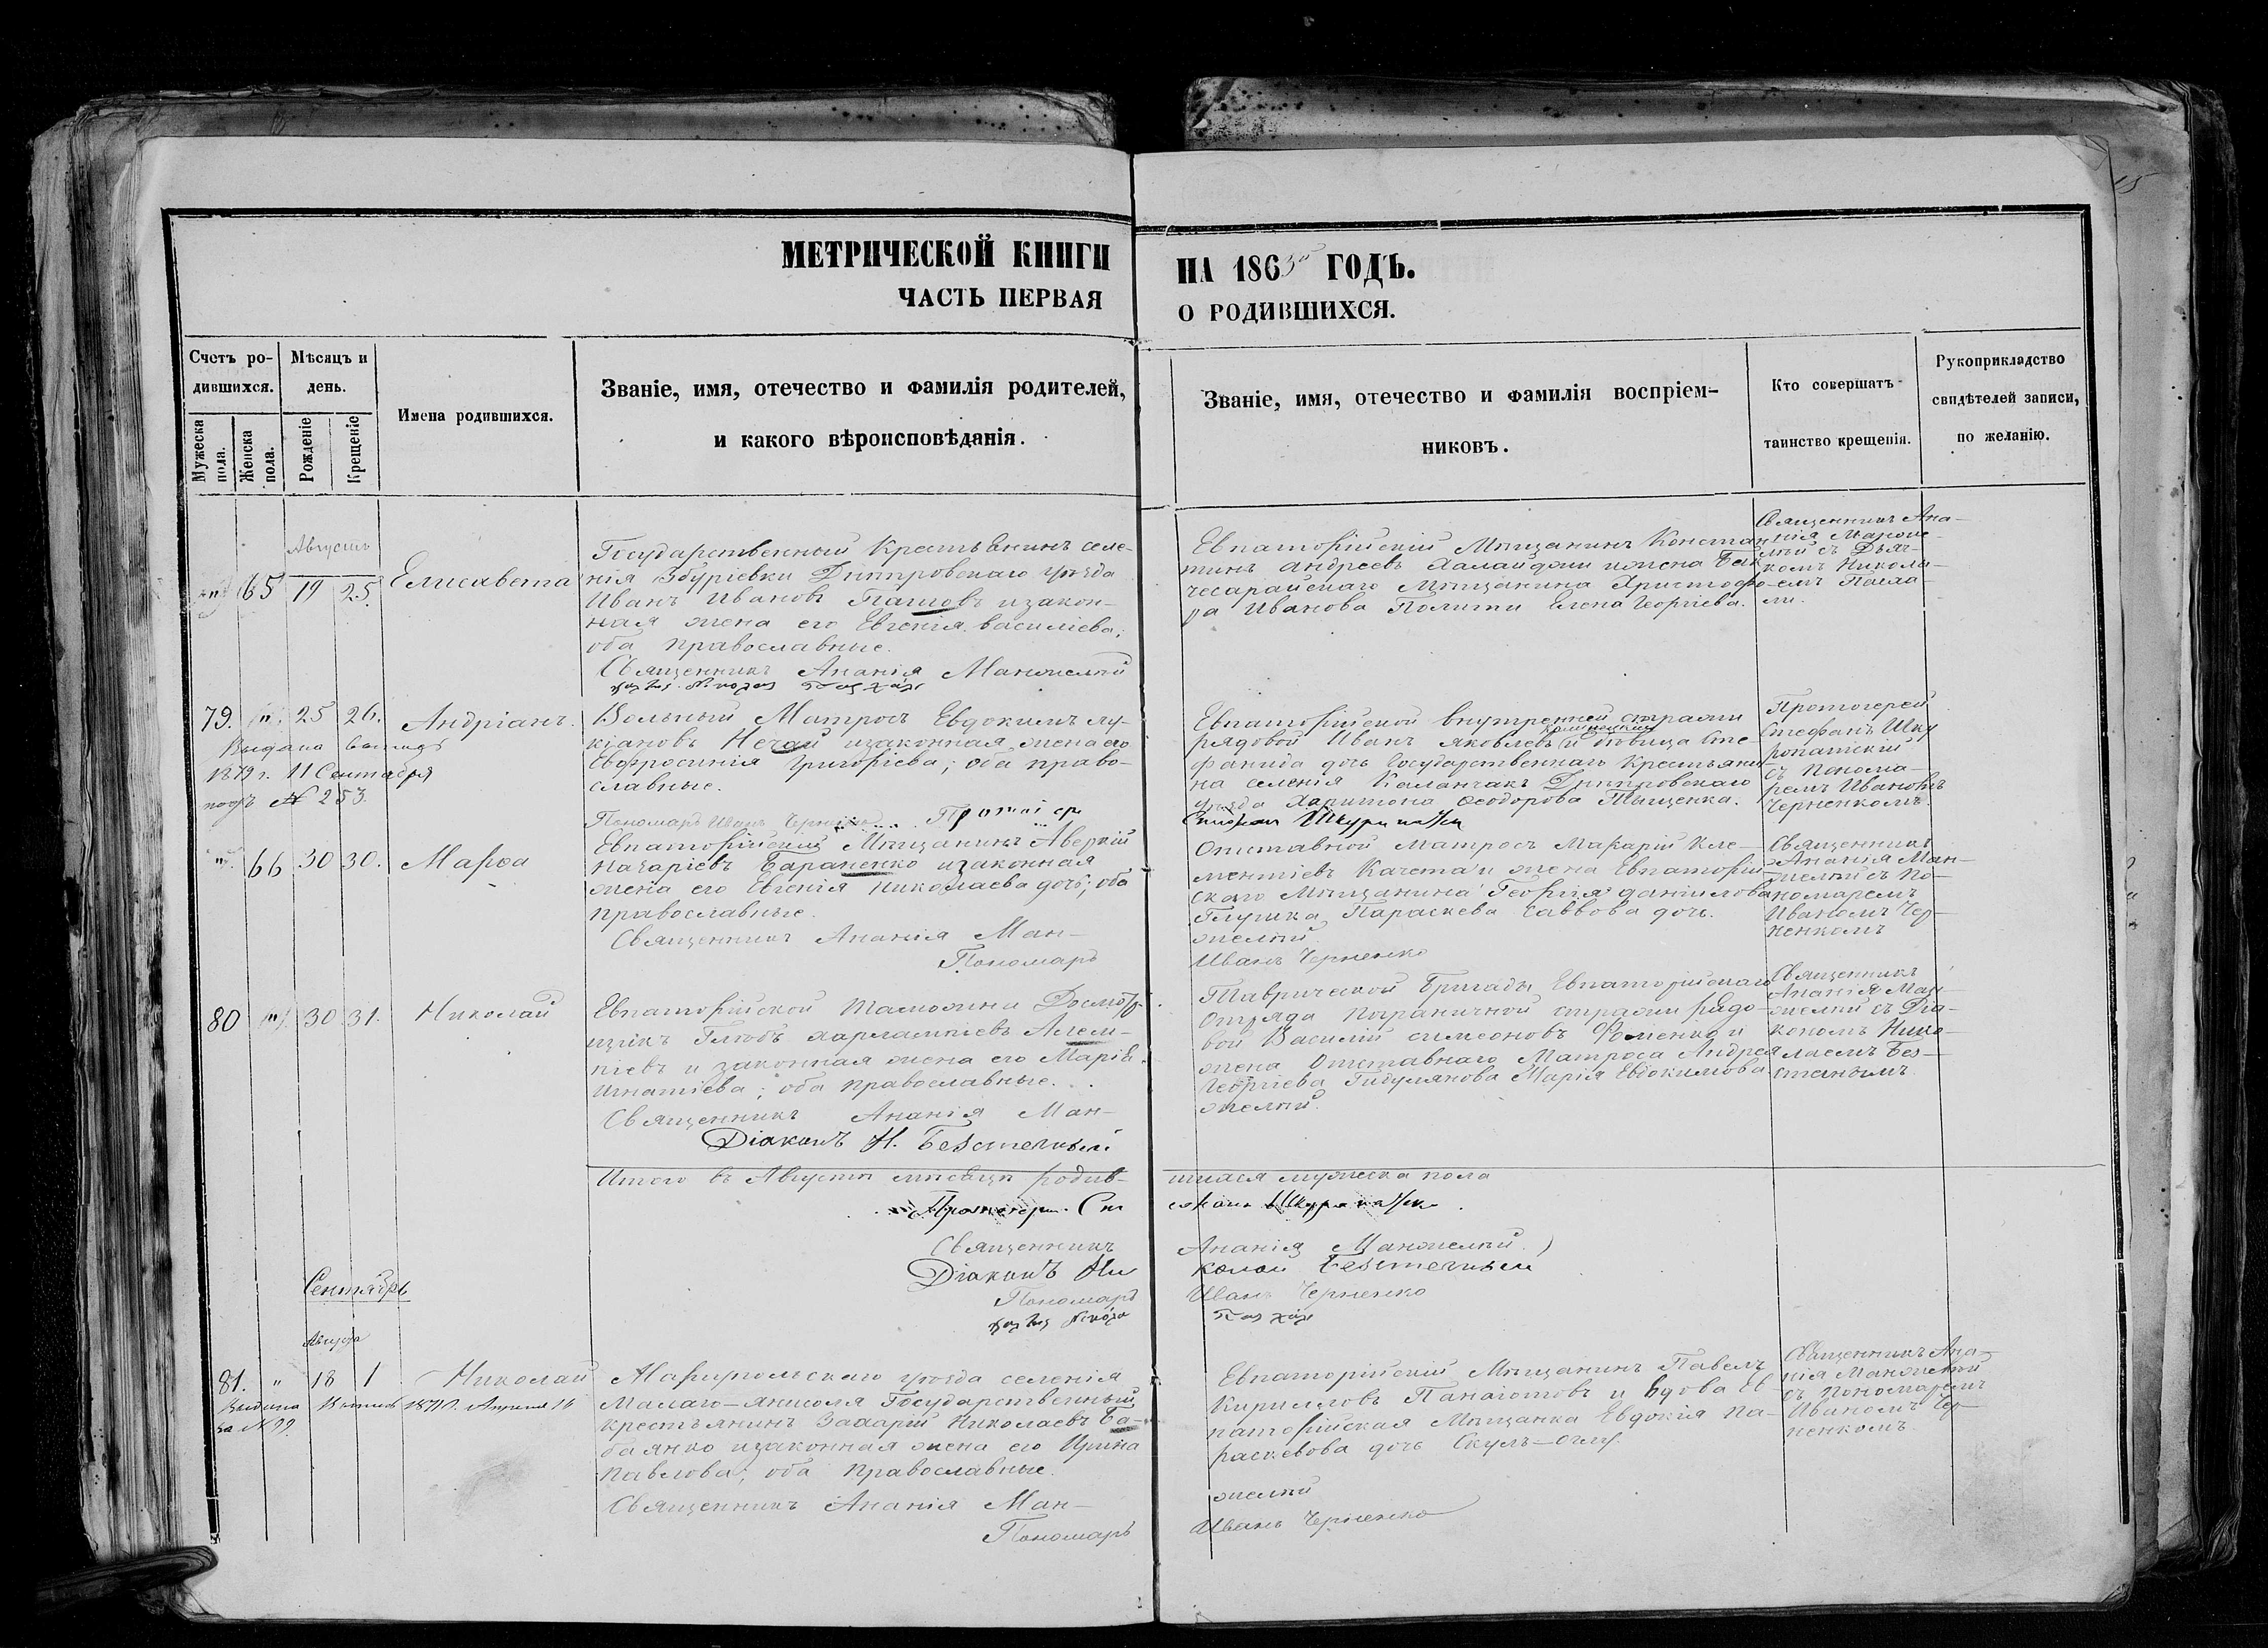 МЕТРИЧЕСКОЙ КНИГИ НА 1863й ГОДЪ.
ЧАСТЬ ПЕРВАЯ О РОДИВШИХСЯ.
Счетъ ро-
дившихся.
Мужеска пола.
Женска пола.
Мѣсяцъ и
день.
Рожденіе
Крещеніе
Имена родившихся.
Званіе, имя, отечество и фамилія родителей,
и какого вѣроисповѣданія.
Званіе, имя, отечество и фамилія воспріем-
никовъ.
Кто совершатъ
таинство крещенія.
Рукоприкладство
свидѣтелей записи,
по желанію.
Августъ
65 19 25. Елисавета
Государственный Крестьянинъ селе-
нія Збуріевки Днѣпровскаго уѣзда
Иванъ Ивановъ изакон-
ная жена его Евгенія Василіева;
оба православные.
Священникъ Ананія Манжелѣй
Евпаторійскій Мѣщанинъ Констан
тинъ Андреевъ ижена Бах
чесарайскаго Мѣщанина Христофо
ра Иванова Полити Елена Георгіева.
Священникъ Ана-
нія Манже-
лѣй съ Дьяч-
комъ Никола-
емъ
79. "" 25 26. Андріанъ.
Выдана
1879 г. 11 Сентября
подъ № 253.
Вольный Матросъ Евдокимъ Лу-
кіановъ Нечай изаконная жена его
Евфросинія Григоріева; оба право-
славные.
Пономарь Иванъ Черненко Протоіер
Евпаторійской внутренней стражи
рядовой Иванъ Яковлевъ и дѣвица Сте-
фанида дочь Государственнаго Крестьяни-
на селенія Каланчакъ Днѣпровскаго
уѣзда Харитона Ѳеодорова Тыщенка.
Протоіерей
Стефанъ Шку
ропатскій
съ Понома-
ремъ Иваномъ
Черненкомъ.
"" 66 30 30. Марѳа
Евпаторійскій Мѣщанинъ Аверкій
Назаріевъ Бараненко изаконная
жена его Евгенія Николаева дочь; оба
православные.
Священникъ Ананія Ман-
Пономарь
Отставной Матросъ Макарій Кле-
ментіевъ Качета и жена Евпаторій-
скаго Мѣщанина Георгія Даніилова
Параскева Саввова дочь.
желѣй
Иванъ Черненко
Священникъ
Ананія Ман-
желѣй съ По-
номаремъ
Иваномъ Чер-
ненкомъ
80 "" 30 31. Николай
Евпаторійской Таможни Досмотр-
щикъ Глѣбъ Харлампіевъ
піевъ и законная жена его Марія
Игнатіева; оба православные.
Священникъ Ананія Ман-
Діаконъ Н. Безстечный
Таврической Бригады Евпаторійскаго
Отряда пограничной стражи рядо-
вой Василій Симеоновъ Фоменко и
жена Отставнаго Матроса Андрея
Георгіева Гидулянова Марія Евдокимова.
желѣй.
Священникъ
Ананія Ман-
желѣй съ Діа-
кономъ Нико-
лаемъ Без-
Итого въ Августѣ мѣсяцѣ родив-
шихся мужеска пола
Протоіерей Сте
Священникъ Ананія Манжелѣй
Діаконъ Ни колай Безстечный
Пономарь Иванъ Черненко
Сентябрь
Августа
81. " 18 1 Николай
Выдана 1871 г. Апреля 16
за № 99
Маріупольскаго уѣзда селенія
Малаго-Янисоля Государственный
крестьянинъ Захарій Николаевъ Ба-
баянко изаконная жена его Ирина
Павлова; оба православные.
Священникъ Ананія Ман-
Пономарь
Евпаторійскій Мѣщанинъ Павелъ
Кирилловъ Панаіотовъ и вдова Ев-
паторійская Мѣщанка Евдокія Па-
раскевова дочь
желѣй
Иванъ Черненко
Священникъ Ана-
нія Манжелѣй
съ Пономаремъ
Иваномъ Чер-
ненкомъ.